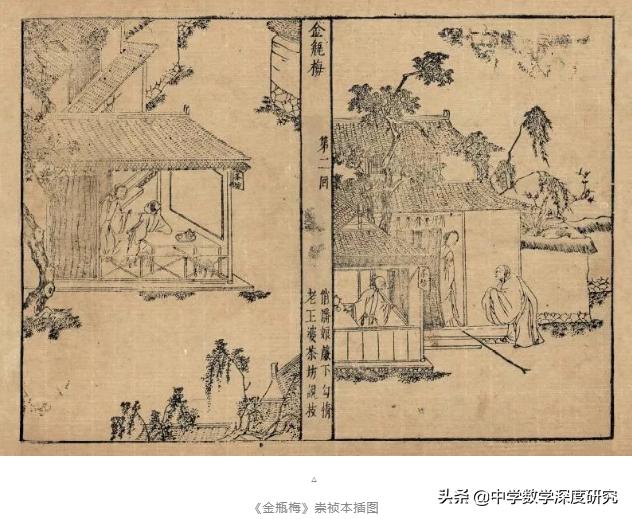 金甁梅
第二回
俏潘娘簾下勾情
老王婆茶坊說技
《金瓶梅》崇祯本插图
头条 @中学数学深度研究